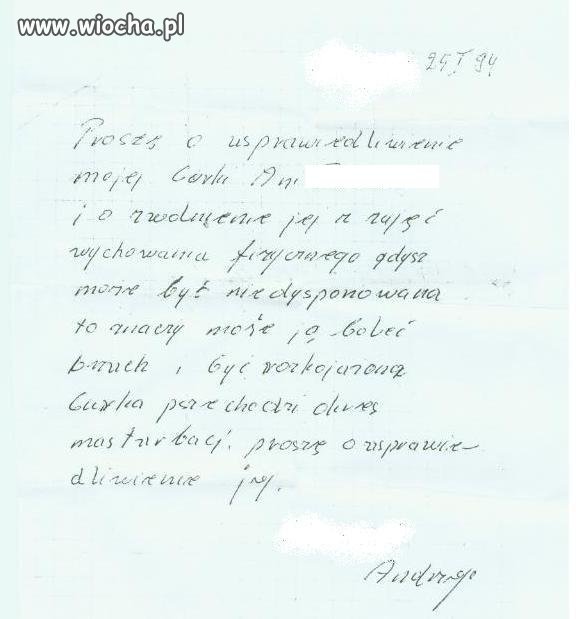 www.wiocha.pl
25 I 94
Proszę o usprawiedliwienie
mojej Curki Ani
i o zwolnienie jej z zajęć
wychowania fizycznego gdysz
może być niedysponowana
to znaczy może ją boleć
brzuch i być rozkojarzona
Curka przechodzi okres
masturbacji. proszę o usprawie-
dliwienie jej.
Andrzej